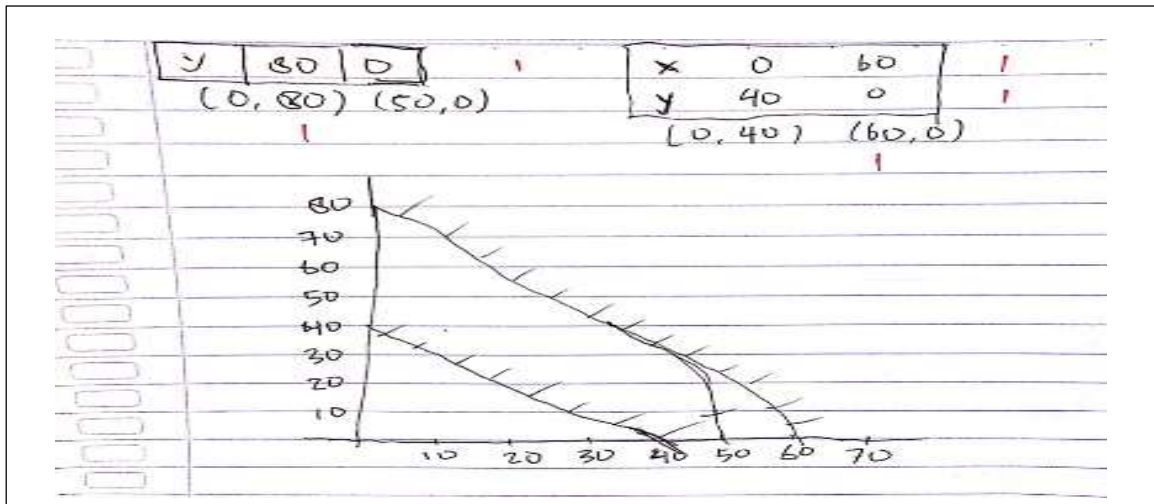 y 80 0
(0, 80) (50,0)
x 0 60
y 40 0
(0, 40) (60,0)
80
70
60
50
40
30
20
10
10 20 30 40 50 60 70